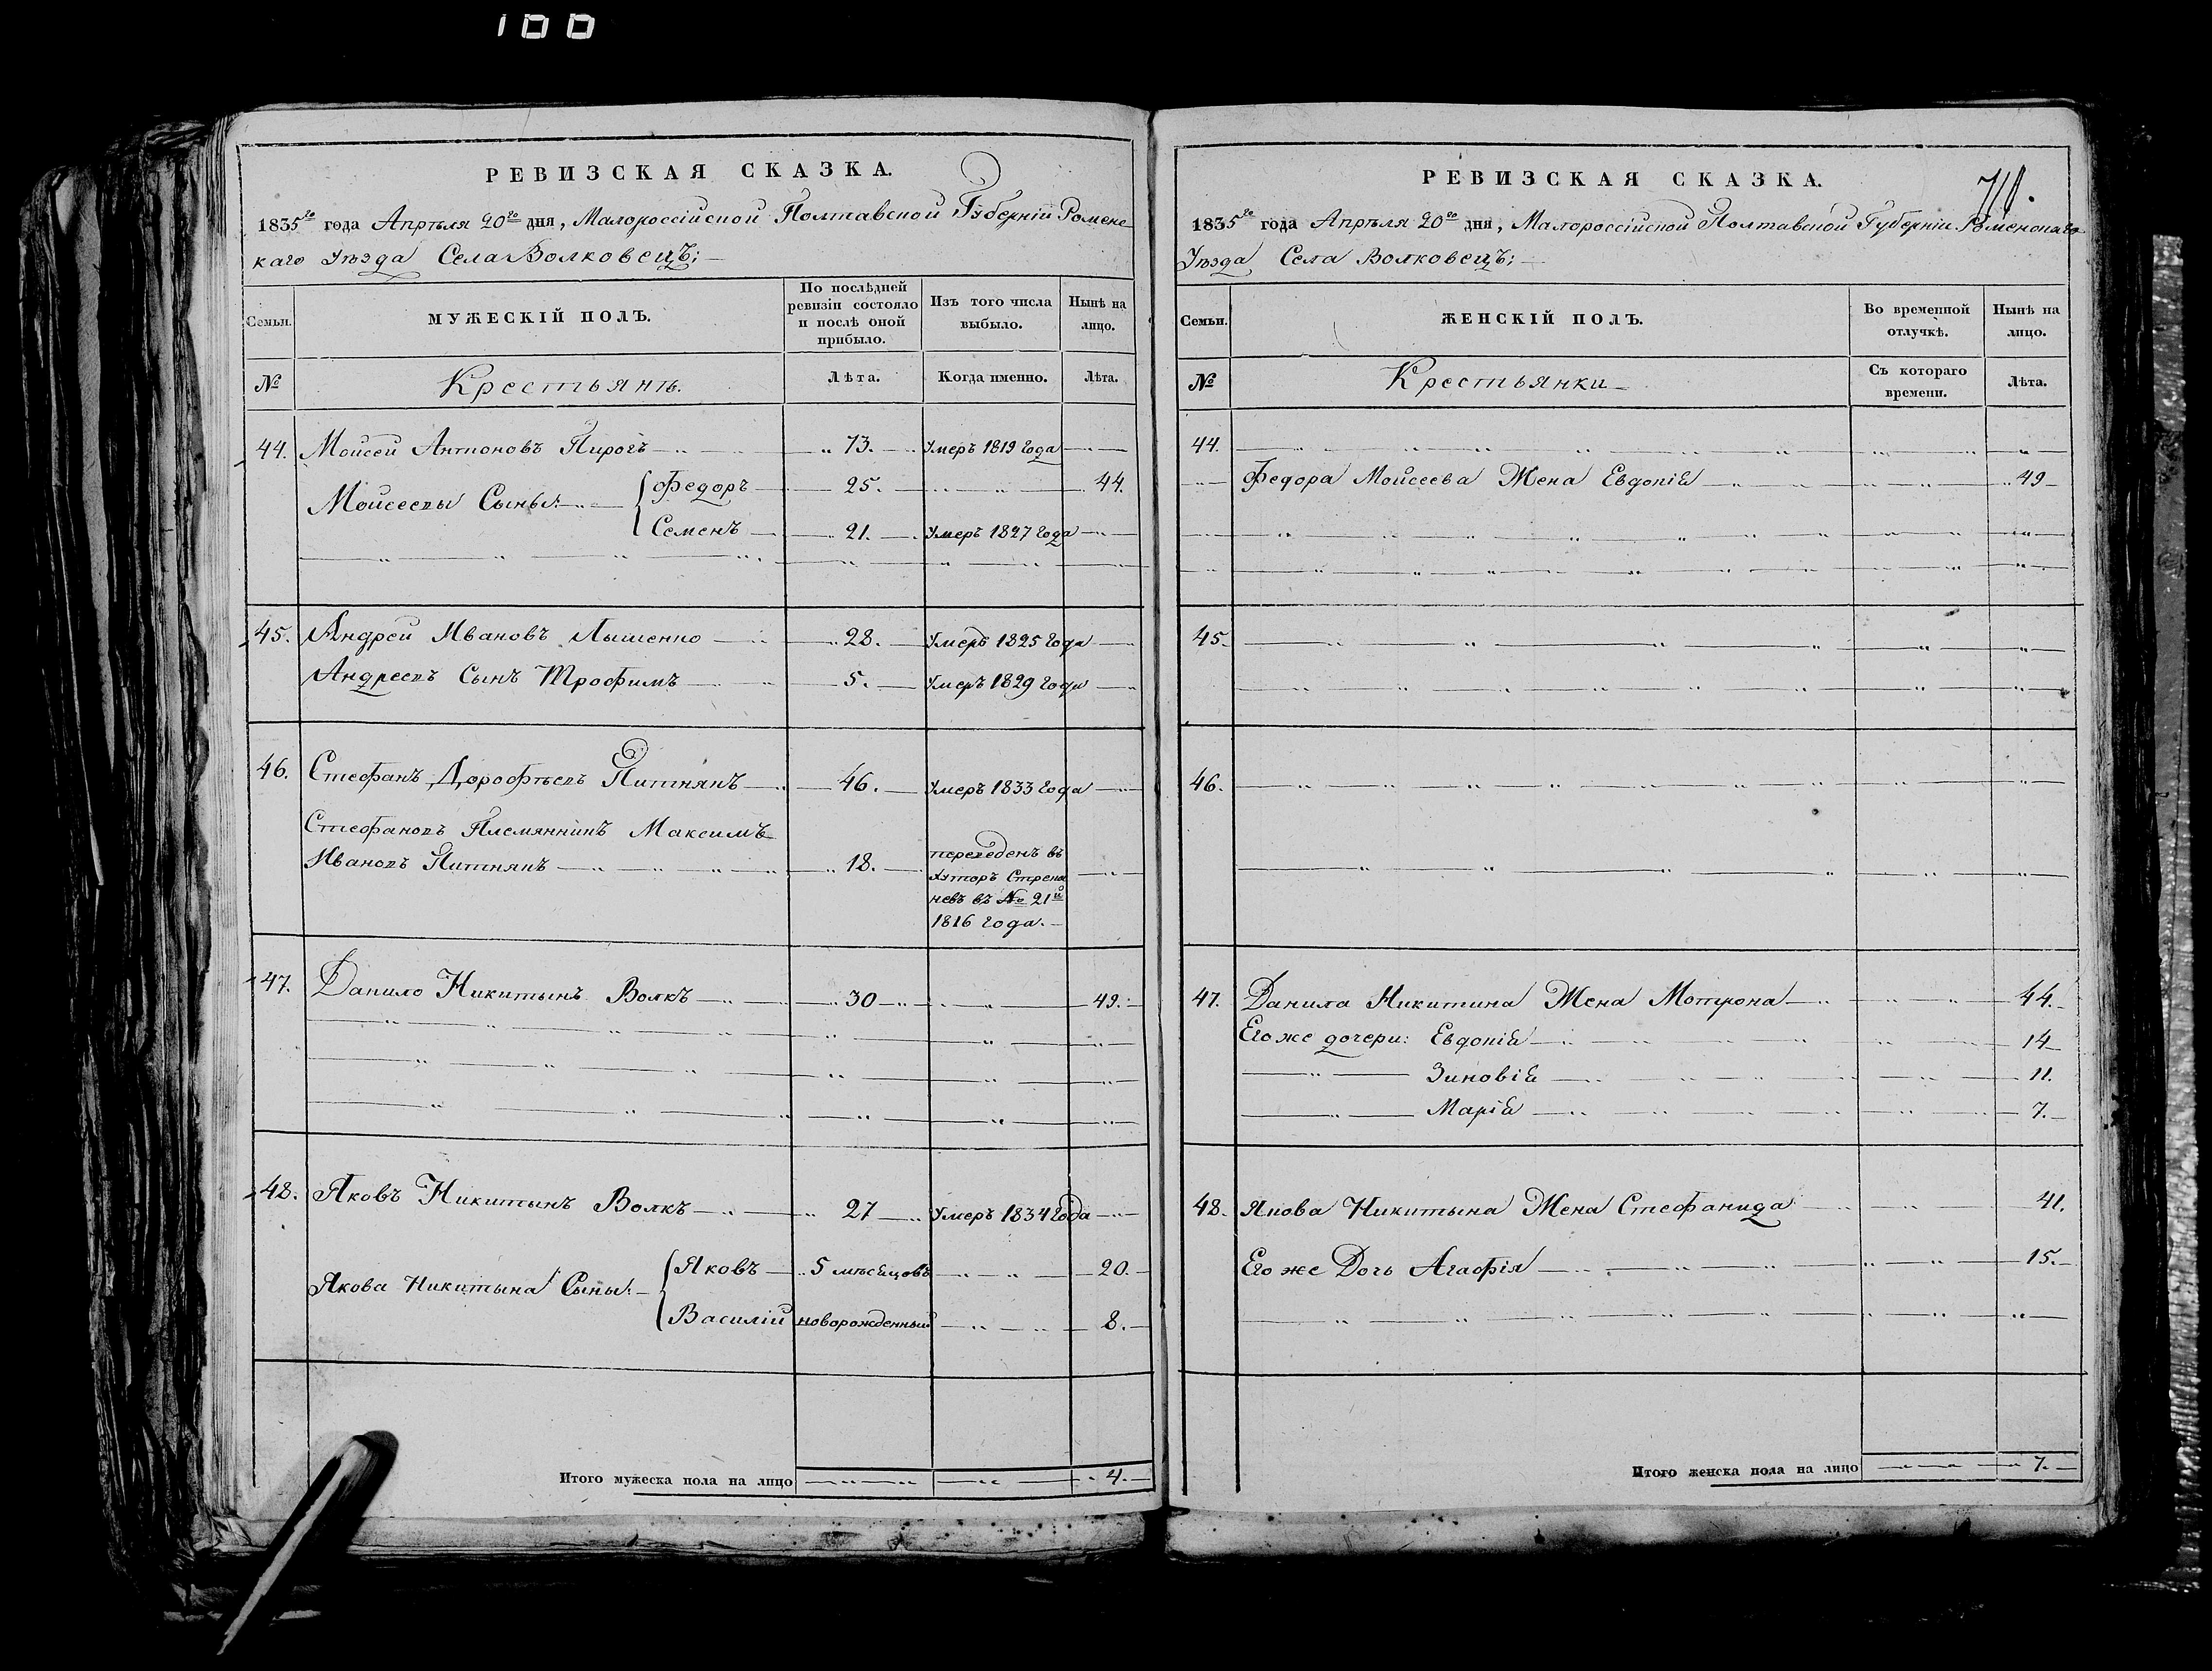 100
РЕВИЗСКАЯ СКАЗКА.
1835го года Апрѣля 20го дня, Малороссійской Полтавской Губерніи Роменс
каго Уѣзда Села Волковецъ;
Семьи. МУЖЕСКІЙ ПОЛЪ. По послѣдней ревизіи состояло и послѣ оной прибыло. Изъ того числа выбыло. Нынѣ на лицо.
№ Крестьянъ. Лѣта. Когда именно. Лѣта.
44. Моисей Антоновъ Пирогъ 73. Умеръ 1819 года
Моисеевы Сыны: Федоръ 25. 44.
Семенъ 21. Умеръ 1827 года
45. Андрей Ивановъ Лышенко 28. Умеръ 1825 года
Андреевъ Сынъ Трофимъ 5. Умеръ 1829 года
46. Стефанъ Дорофѣевъ Питнякъ 46. Умеръ 1833 года
Стефановъ Племянникъ Максимъ
Ивановъ Питнякъ 18. переведенъ въ
Хуторъ
въ № 21й
1816 года.
47. Данило Никитынъ Волкъ 30 49.
48. Яковъ Никитынъ Волкъ 27 Умеръ 1834 года
Якова Никитына Сыны: Яковъ 5 мѣсяцовъ 20.
Василій новорожденный 8.
Итого мужеска пола на лицо 4.
РЕВИЗСКАЯ СКАЗКА.
1835го года Апрѣля 20го дня, Малороссійской Полтавской Губерніи Роменскаго
Уѣзда Села Волковецъ;
Семьи. ЖЕНСКІЙ ПОЛЪ. Во временной отлучкѣ. Нынѣ на лицо.
№ Крестьянки Съ котораго времени. Лѣта.
44.
Федора Моисеева Жена Евдокія 49
45.
46.
47. Данила Никитина Жена Мотрона 44.
Его же дочери: Евдокія 14
Зиновія 11.
Марія 7.
48. Якова Никитына Жена Стефанида 41.
Его же Дочь Агафія 15.
Итого женска пола на лицо 7.